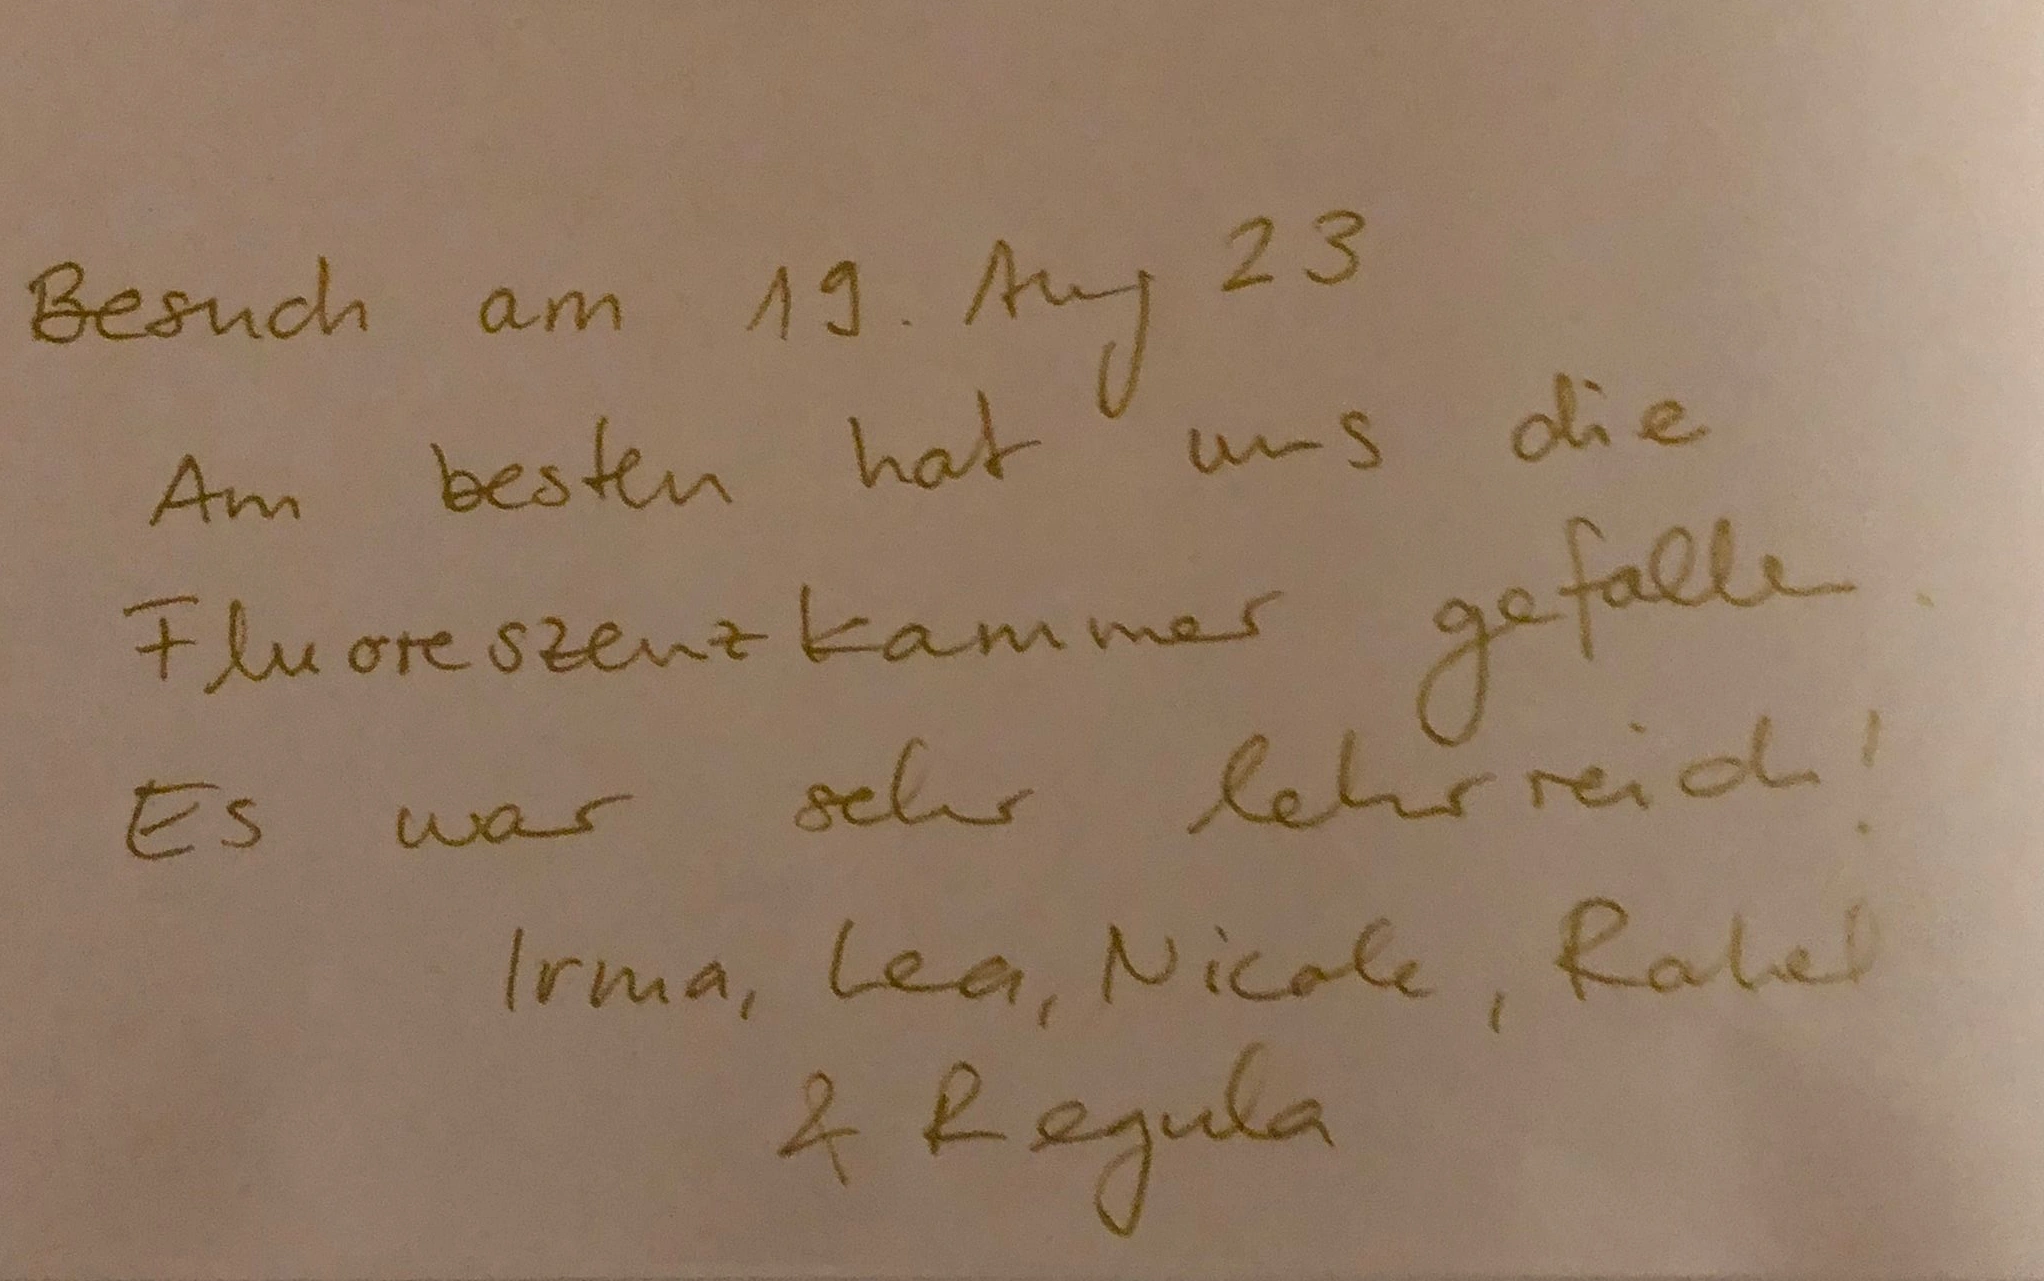 Besuch am 19. Aug 23
Am besten hat uns die
Fluoreszenzkammer gefallen.
Es war sehr lehrreich!
Irma, Lea, Nicole, Rahel
& Regula